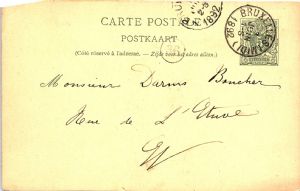 CARTE POSTALE
POSTKAART
(Côté réservé à l'adresse. — Zijde voor het adres alleen.)
BRUXELLES (MIDI) 1892
1892
Monsieur Darius Boucher
Rue de L'Etuve